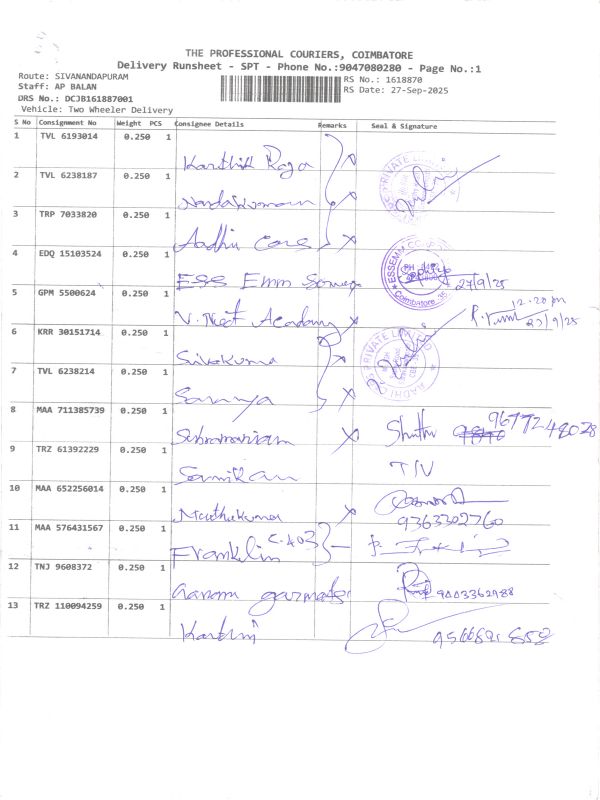 THE PROFESSIONAL COURIERS, COIMBATORE
Delivery Runsheet - SPT - Phone No.:9047080280 - Page No.:1
Route: SIVANANDAPURAM
Staff: AP BALAN
DRS No.: DCJB161887001
Vehicle: Two Wheeler Delivery
RS No.: 1618870
RS Date: 27-Sep-2025
S No Consignment No Weight PCS Consignee Details Remarks Seal & Signature
1 TVL 6193014 0.250 1
Karthik Raja
2 TVL 6238187 0.250 1
Nandakumar
3 TRP 7033820 0.250 1
Aadhi Cars
4 EDQ 15103524 0.250 1
ESS Emm 27/9/25
5 GPM 5500624 0.250 1
V. Net Academy 12.20 pm
27/9/25
6 KRR 30151714 0.250 1
Sivakuma
7 TVL 6238214 0.250 1
Saranya
8 MAA 711385739 0.250 1
Subramaniam 9677248028
9 TRZ 61392229 0.250 1
T/V
10 MAA 652256014 0.250 1
Muthukumar 9363302760
11 MAA 576431567 0.250 1
Franklin C-403
12 TNJ 9608372 0.250 1
9003362988
13 TRZ 110094259 0.250 1
PRIVATE LIMITED
ESSEMM
Coimbatore
PRIVATE LIMITED